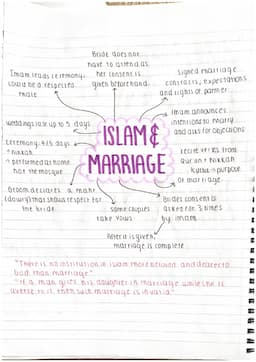 Bride does not
have to attend as
her consent is
given beforehand.
Imam leads ceremony,
could be a respected
male.
signed marriage
contracts, expectations
and rights of partner
Imam announces
intentions to marry
and asks for objections
weddings last up to 5 days
ISLAM &
MARRIAGE
Ceremony: 4/5 days
+ nikkah
performed at home
not the mosque.
recite verses from
Qur'an + nikkah
purpose
of marriage.
Groom declares a mahr
(dowry) that shows respect for
the bride
some couples
take vows
Brides consent is
asked for 3 times
by imam.
After it is given,
marriage is complete
"There is no institution in islam more beloved and dearer to
god than marriage"
"If a man gives his daughter in marriage while she is
averse to it, then such marriage is invalid."